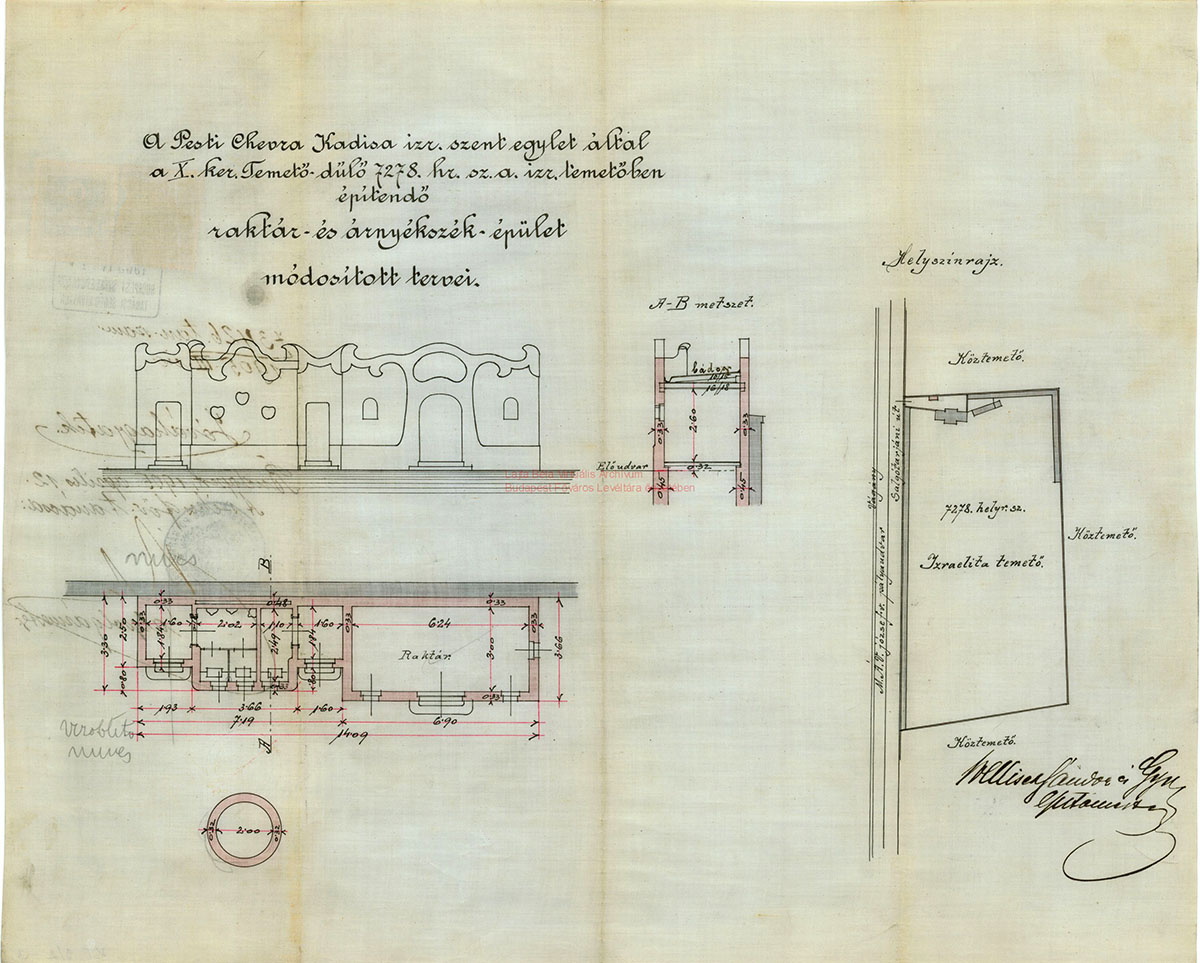 A Pesti Chevra Kadisa izr. szent egylet által
a X. ker. Temető-dülő 7278. hr. sz. a. izr. temetőben
épitendő
raktár- és árnyékszék-épület
módositott tervei.
Helyszinrajz.
A-B metszet.
bádog
16/18
2·60
0·33
0·33
Előudvar
0·32
0·45
0·45
Lajta Béla Virtuális Archívum
Budapest Főváros Levéltára engedélyében
Köztemető.
Salgótarjáni út
Vágány
M.Á.V. józsefv. pályaudvar
7278. helyr. sz.
Izraelita temető.
Köztemető.
Köztemető.
Sándor és Gyu
B
0·33
0·48
0·33
3·30
2·50
0·80
0·33
1·60
1·84
2·02
1·10
2·49
1·60
1·84
·80
0·33
6·24
3·00
0·33
0·33
3·66
Raktár.
1·93
3·66
1·60
7·19
6·90
14·09
A
0·32
2·00
0·32